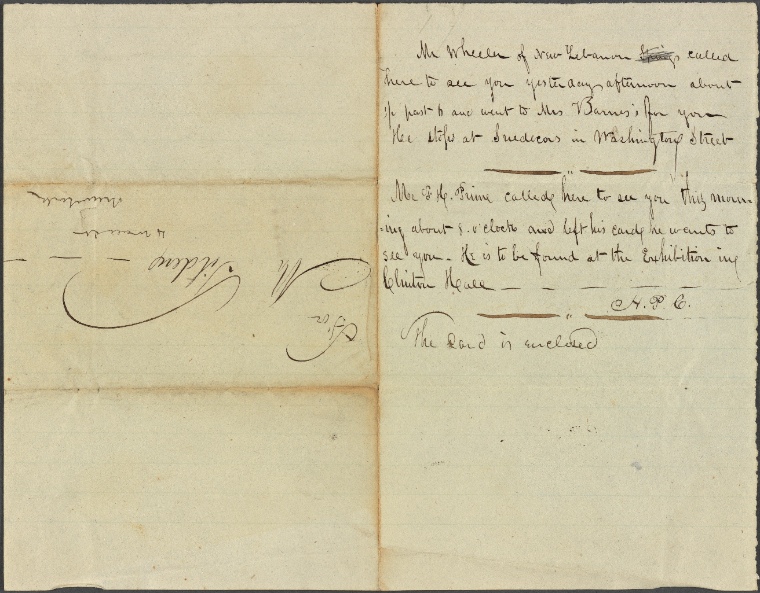 Mr Wheeler of New Lebanon Springs called
here to see you yesterday afternoon about
½ past 6 and went to Mrs Barnes's for you
He stops at Snedecors in Washington Street
Mr F. H. Prime called here to see you this morn-
-ing about 8. o'clock and left his card, he wants to
see you - He is to be found at the Exhibition in
Clinton Hall
A. P. C.
The Card is enclosed
For
Mr Tilden